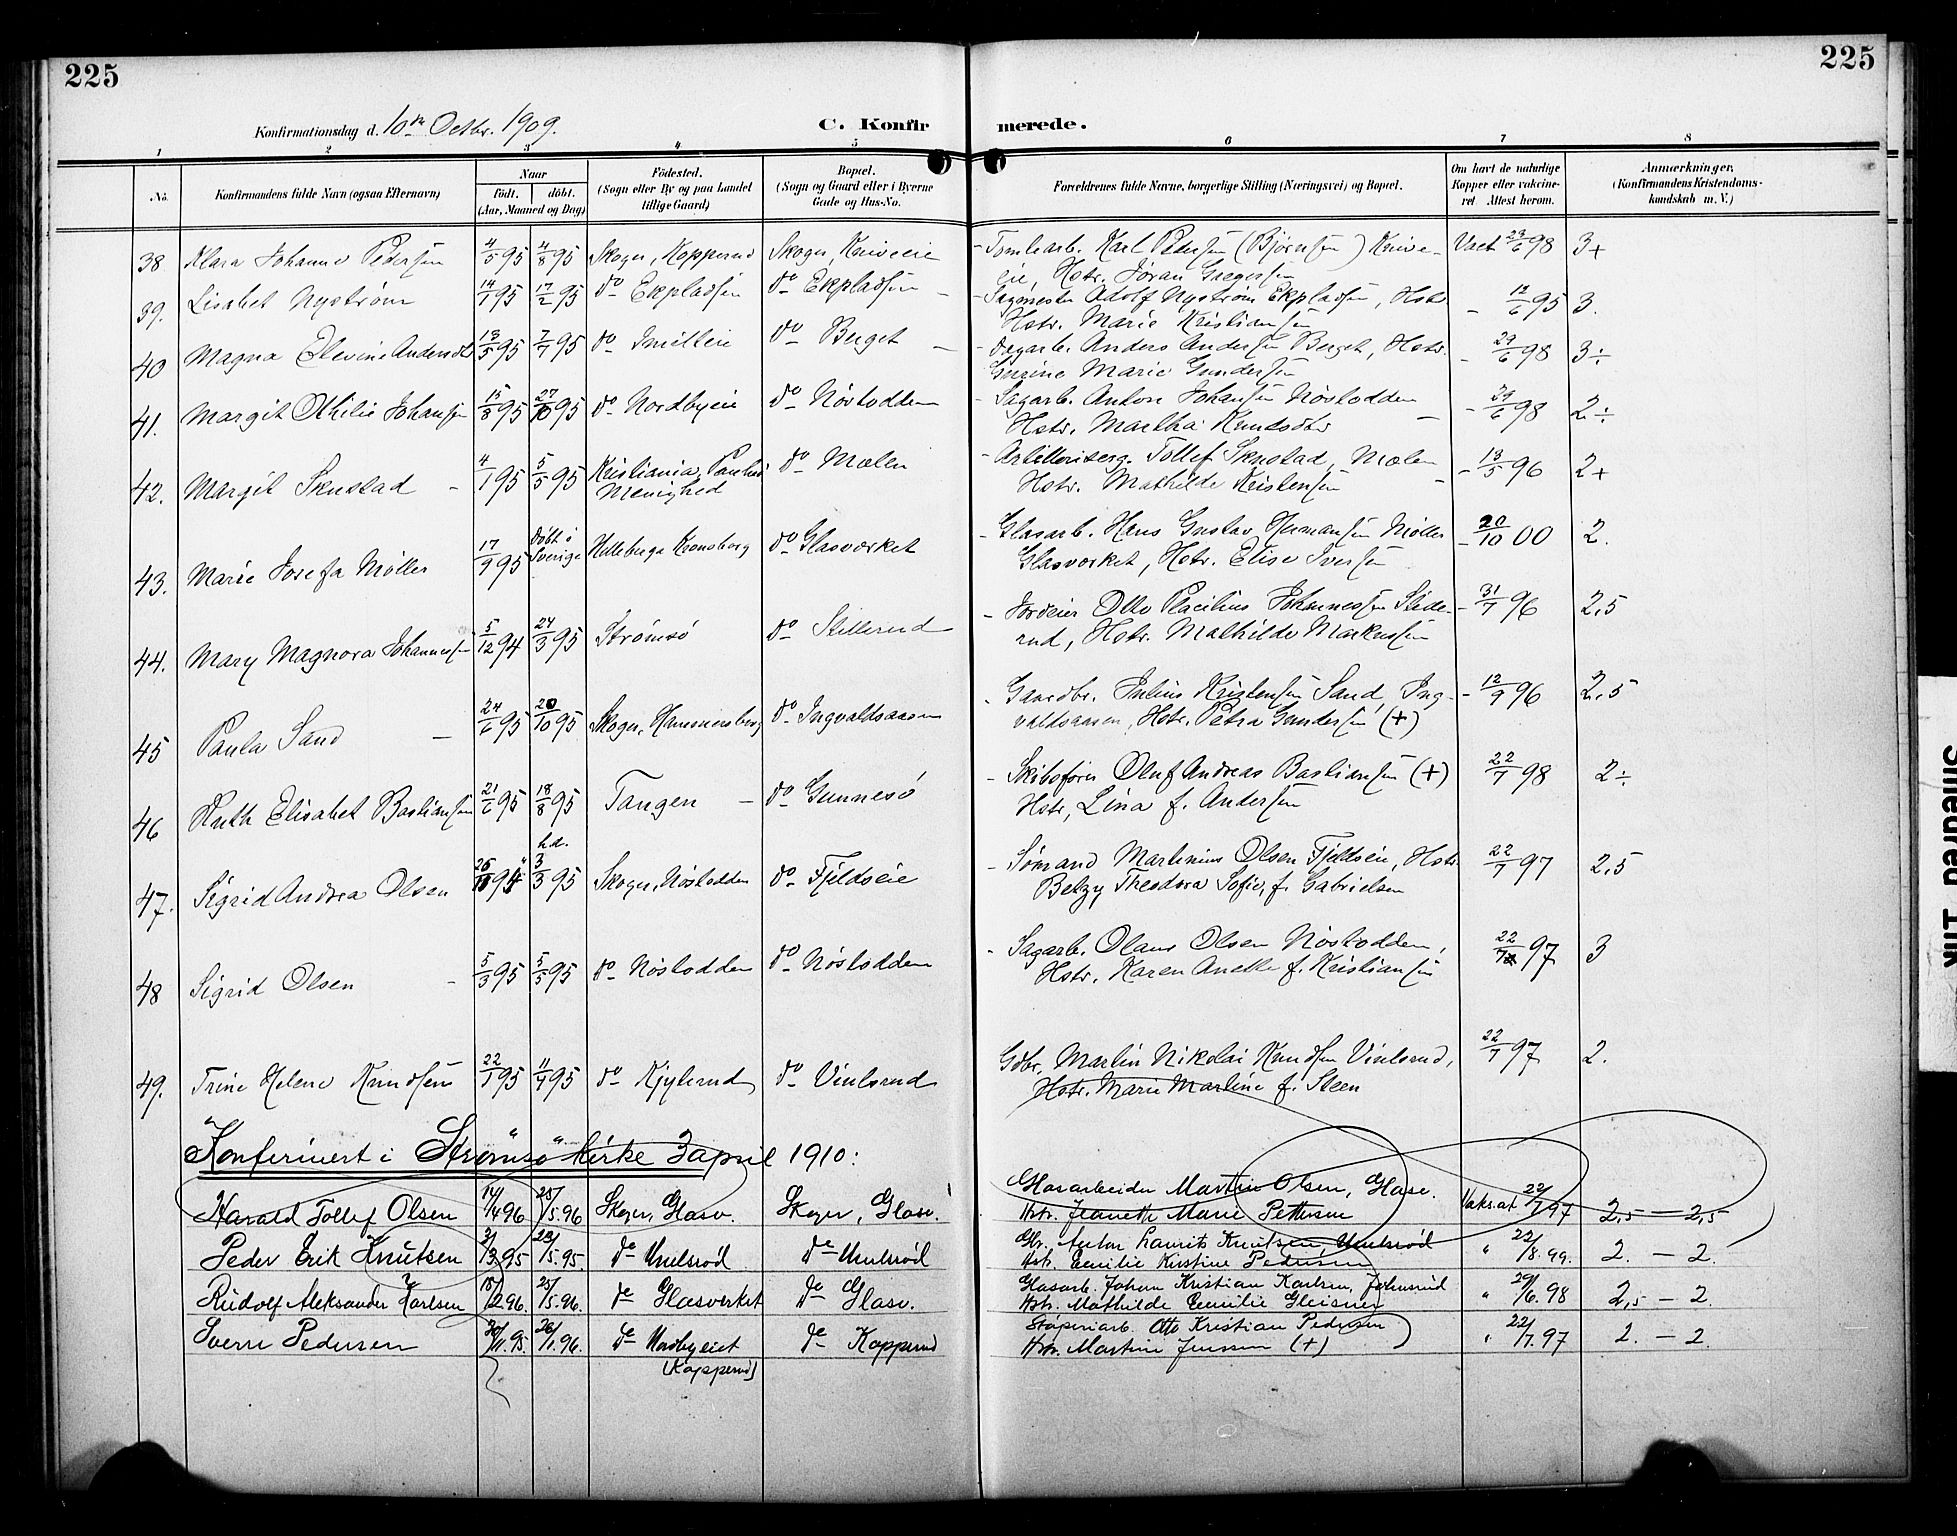 225
225
Konfirmationsdag d. 10de Octbr. 1909.
C. Konfirmerede.
1 2 3 4 5 6 7 8
No.
Konfirmandens fulde Navn (ogsaa Efternavn)
Naar
født. døbt.
(Aar, Maaned og Dag)
Fødested.
(Sogn eller By og paa Landet
tillige Gaard)
Bopæl.
(Sogn og Gaard eller i Byerne
Gade og Hus-No.
Forældrenes fulde Navne, borgerlige Stilling (Næringsvei) og Bopæl.
Om havt de naturlige
Kopper eller vakcine-
ret Attest herom.
Anmerkninger.
(Konfirmandens Kristendoms-
kundskab m. V.)
38 Klara Johanne Pedersen 4/5 95 4/8 95 Skoger, Kopperud Skoger, Kniveeie - Tomtearb. Karl Pedersen (Bjørnsen) Knive- Vact 29/6 98 3+
eie, Hstr. Jøran Gregersen
39. Lisabet Nystrøm 14/1 95 17/2 95 do Ekpladsen do Ekpladsen - Sagmester Adolf Nystrøm Ekpladsen, Hstr. - 12/6 95 3.
Hstr. Marie Kristiansen
40 Magna Elevine Andersdt 13/5 95 7/7 95 do do Berget - Dagarb. Anders Andersen Berget, Hstr. - 29/6 98 3÷
Gurine Marie Gundersen
41. Margit Othilie Johansen 15/8 95 27/10 95 do Nordbyeie do Nøstodden - Sagarb. Anton Johansen Nøstodden - 29/6 98 2÷
Hstr. Martha Knudsdtr
42. Margit Skustad 4/1 95 5/5 95 Kristiania, Paulus do Mælen - Artilleriserg. Tollef Skustad, Mælen - 13/5 96 2+
Menighed
Hstr. Mathilde Kristensen
43. Marie Josefa Møller 17/9 95 Døbt i Sverige Kronoberg do Glasværket - Glasarb. Hans Gustav Hermansen Møller - 20/10 00 2.
Glasværket, Hstr. Elise Iversen
44. Mary Magnora Johannessen 5/12 94 24/3 95 Strømsø do Stillerud - Jordeier Otto Placilius Johannessen Stille- - 31/7 96 2,5
rud, Hstr. Mathilde Markussen
45 Paula Sand 24/6 95 20/10 95 Skoger, Hammersberg do Ingvaldsaasen - Gaardbr. Julius Kristensen Sand, Ing- - 12/9 96 2,5
valdsaasen, Hstr. Petra Gundersen (+)
46 Ruth Elisabet Bastiansen 21/6 95 18/8 95 Tangen do Gunnesø - Skibsfører Oluf Andreas Bastiansen (+) 22/7 98 2÷
Hstr, Lina f. Andersen
47. Sigrid Andrea Olsen 26/10 94 h.d. 3/3 95 Skoger, Nøstodden do Fjeldseie - Sømand Martinius Olsen Fjeldseie, Hstr. 22/7 97 2,5
Betzy Theodora Sofie, f. Gabrielsen
48 Sigrid Olsen 5/3 95 5/5 95 do Nøstodden do Nøstodden - Sagarb. Olaus Olsen Nøstodden, 22/7 97 3
Hstr. Karen Anette f. Kristiansen
49. Trine Helene Knudsen 22/1 95 11/4 95 do Kjylerud do Vinlsrud Gdbr. Martin Nikolai Knudsen Vinlsrud, 22/7 97 2.
Hstr. Marie Martine f. Steen
Konfirmert i Strømsø kirke 3 april 1910:
Harald Tollef Olsen 14/4 96 25/5.96 Skoger, Glasv. Skoger, Glasv. Glasarbeider Martin Olsen, Glasv. Vaks.at 22/7 97 2,5 — 2,5
Hstr. Jeaneth Marie Pettersen
Peder Erik Knutsen 3/3.95 23/5.95. de de Gbr. Anton Laurits Knutsen, " 22/8.99. 2. — 2.
Hstr. Emilie Kirstine Pedersen
Rudolf Aleksander Karlsen 18/2 96. 25/5.96. de Glasverket de Glasv. Glasarb. Johan Kristian Karlsen, " 29/6.98 2,5 — 2.
Hstr. Mathilde Emilie Gleisner
Sverre Pedersen 30/11.95. 26/1.96. de Nordbyeiet de Kopperud Støperiarb. Otto Kristian Pedersen " 22/7.97 2. — 2.
(Kopperud) Hstr. Martine Jenssen (+)